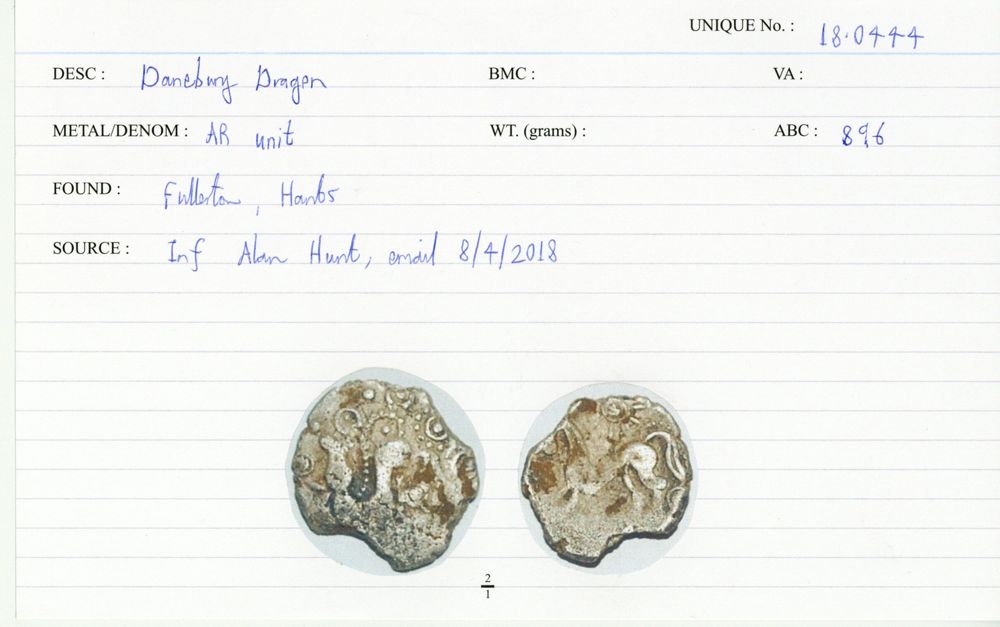 UNIQUE No. : 18.0444
DESC : Danebury Dragon BMC : VA :
METAL/DENOM : AR unit WT. (grams) : ABC : 896
FOUND : Fullerton, Hants
SOURCE : Inf Alan Hunt, email 8/4/2018
2
1